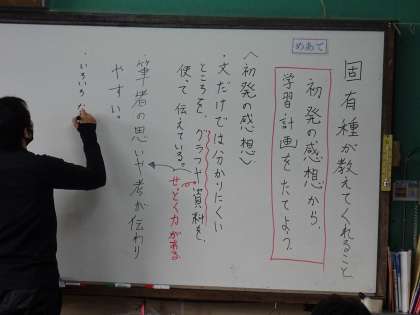 固有種が教えてくれること
めあて
初発の感想から、
学習計画をたてよう。
〈初発の感想〉
・文だけでは分かりにくい
ところを、グラフや資料を
使って伝えている。
せっとく力がある
・筆者の思いや考が伝わり
やすい。
・いろいろ